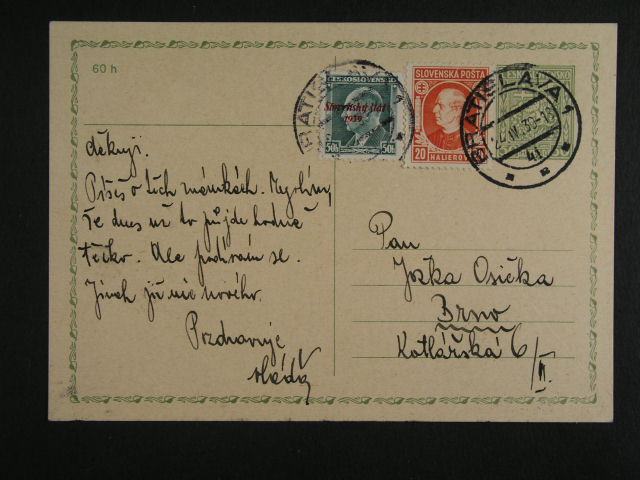 60 h
ČESKOSLOVENSKO
Slovenský štát
1939
50h 50h
SLOVENSKÁ POŠTA
20
HALIEROV
BRATISLAVA 1
BRATISLAVA 1
41
děkuji.
Píšeš o těch známkách. Myslím,
že dnes už to půjde hodně
těžko. Ale podívám se.
Jinak již nic nového.
Pozdravuje
Pan
Jožka Osička
Brno
Kotlářská 6/II.